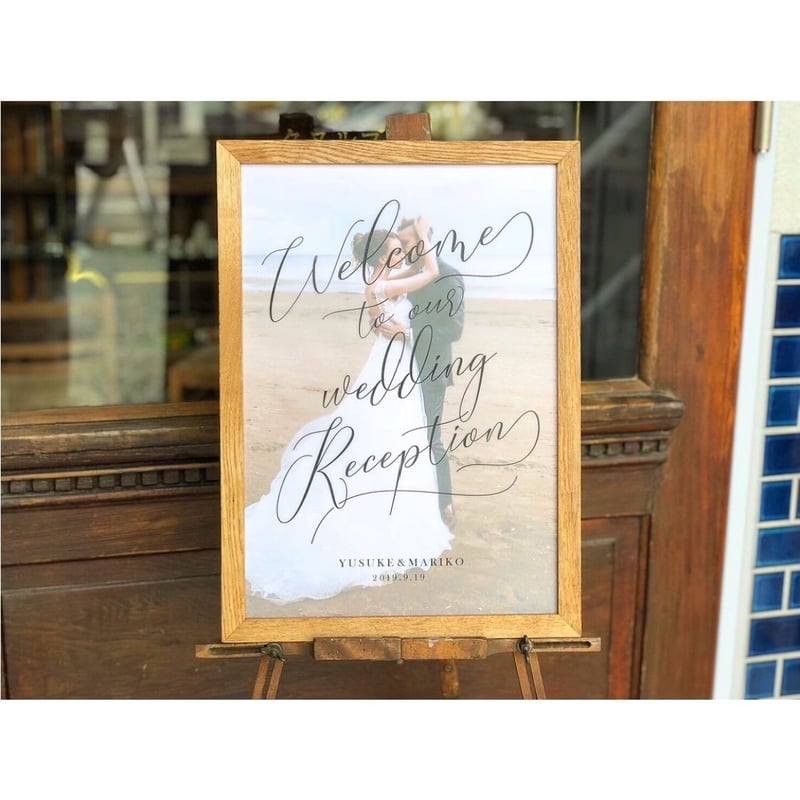 Welcome
to our
wedding
Reception
YUSUKE&MARIKO
2019.9.19